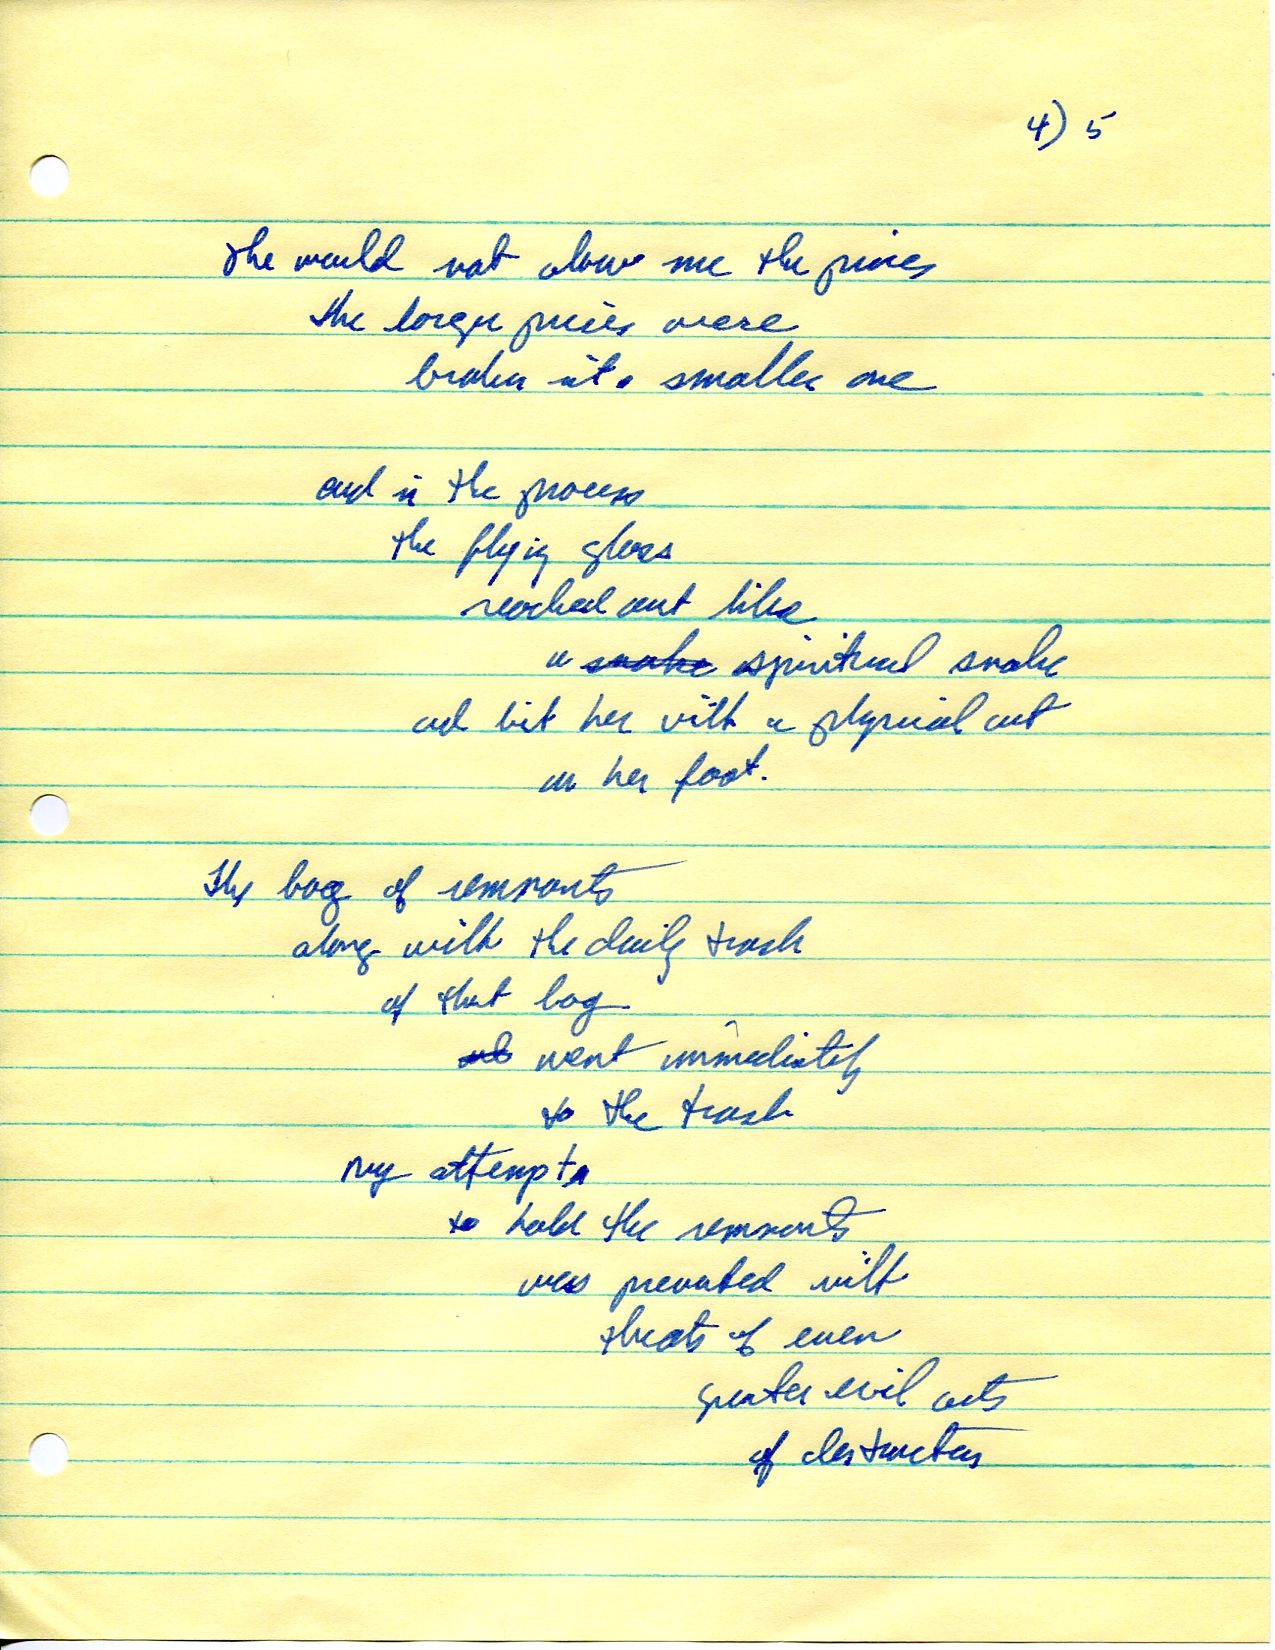 4) 5
She would not alow me the pieces
the larger pieces were
broken into smaller one
and in the process
the flying glass
reached out like
a snake spiritual snake
and bit her with a physical cut
on her foot.
The bag of remnants
along with the daily trash
of that bag
went immediately
to the trash
my attempts
to hold the remnants
was prevented with
threats of even
greater evil acts
of destruction